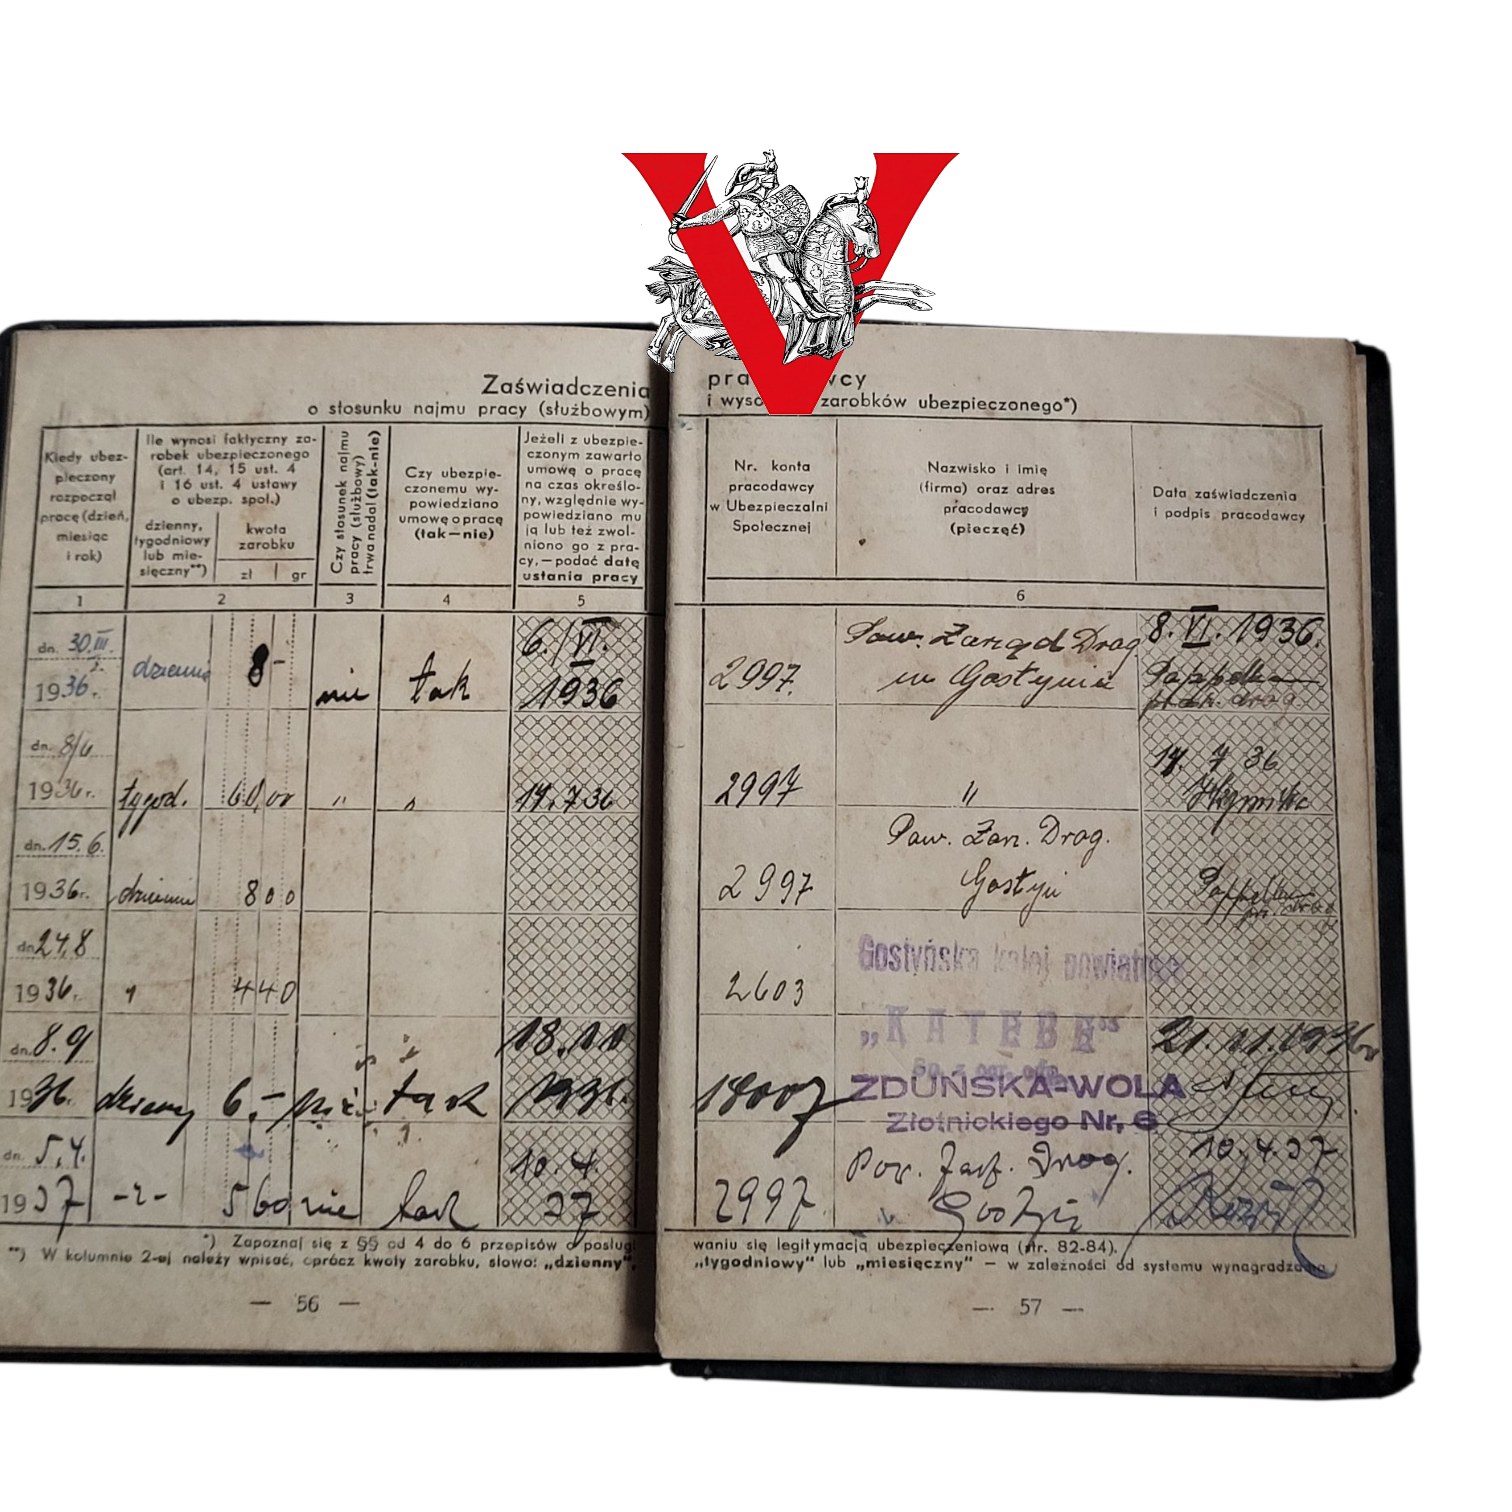 Zaświadczenia
o stosunku najmu pracy (służbowym)
Kiedy ubez-
pieczony
rozpoczął
pracę (dzień,
miesiąc
i rok)
Ile wynosi faktyczny za-
robek ubezpieczonego
(art. 14, 15 ust. 4
i 16 ust. 4 ustawy
o ubezp. społ.)
dzienny,
tygodniowy
lub mie-
sięczny**)
kwota
zarobku
zł gr
Czy stosunek najmu
pracy (służbowy)
trwa nadal (tak-nie)
Czy ubezpie-
czonemu wy-
powiedziano
umowę o pracę
(tak—nie)
Jeżeli z ubezpie-
czonym zawarto
umowę o pracę
na czas określo-
ny, względnie wy-
powiedziano mu
ją lub też zwol-
niono go z pra-
cy,—podać datę
ustania pracy
1 2 3 4 5
dn. 30.III.
1936 r. dziennie 8- nie tak 6./VI. 1936
dn. 8/6
1936 r. tygod. 60,00 " " 17.7.36
dn. 15.6.
1936 r. dziennie 800
dn. 24.8
1936 r. " 440
dn. 8.9
1936 r. 6,- tak 18.10
dn. 5.4.
1937 -"- 560 nie tak 10.4. 37
*) Zapoznaj się z §§ od 4 do 6 przepisów o posługi
**) W kolumnie 2-ej należy wpisać, oprócz kwoty zarobku, słowo: „dzienny",
— 56 —
V
i zarobków ubezpieczonego*)
Nr. konta
pracodawcy
w Ubezpieczalni
Społecznej
Nazwisko i imię
(firma) oraz adres
pracodawcy
(pieczęć)
Data zaświadczenia
i podpis pracodawcy
6
2997. Pow. Zarząd Drog. 8.VI.1936.
w Gostyniu
2997 " 17. 7 36
Pow. Zarz. Drog.
2997 Gostyń
Gostyńska kolej powiatowa
2603
„KATEBE"
Sp. z ogr. odp. 21.11.1936 r
18007 ZDUŃSKA-WOLA
Złotnickiego Nr. 6
Pow. Zarz. Drog. 10.4.37
2997. Gostyń
waniu się legitymacją ubezpieczeniową (str. 82-84).
„tygodniowy" lub „miesięczny" — w zależności od systemu wynagradzania
— 57 —